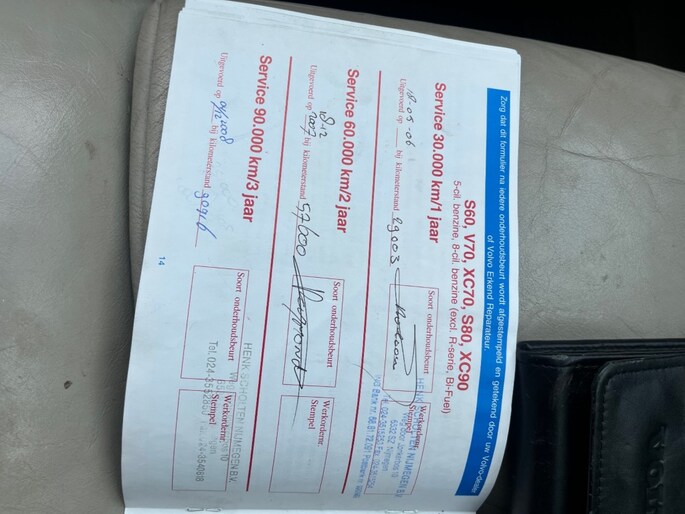 Zorg dat dit formulier na iedere onderhoudsbeurt wordt afgestempeld en getekend door uw Volvo-dealer
of Volvo Erkend Reparateur.
S60, V70, XC70, S80, XC90
5-cil. benzine, 8-cil. benzine (excl. R-serie, Bi-Fuel)
Service 30.000 km/1 jaar
Uitgevoerd op 18-05-06 bij kilometerstand 29003
Soort onderhoudsbeurt
Werkordernr.
Stempel
HENK SCHOLTEN NIJMEGEN B.V.
Service 60.000 km/2 jaar
Uitgevoerd op 18-12 2007 bij kilometerstand 57600
Soort onderhoudsbeurt
Werkordernr.
Stempel
Service 90.000 km/3 jaar
Uitgevoerd op bij kilometerstand
Soort onderhoudsbeurt
Werkordernr.
Stempel
HENK SCHOLTEN NIJMEGEN B.V.
Tel. 024-
14